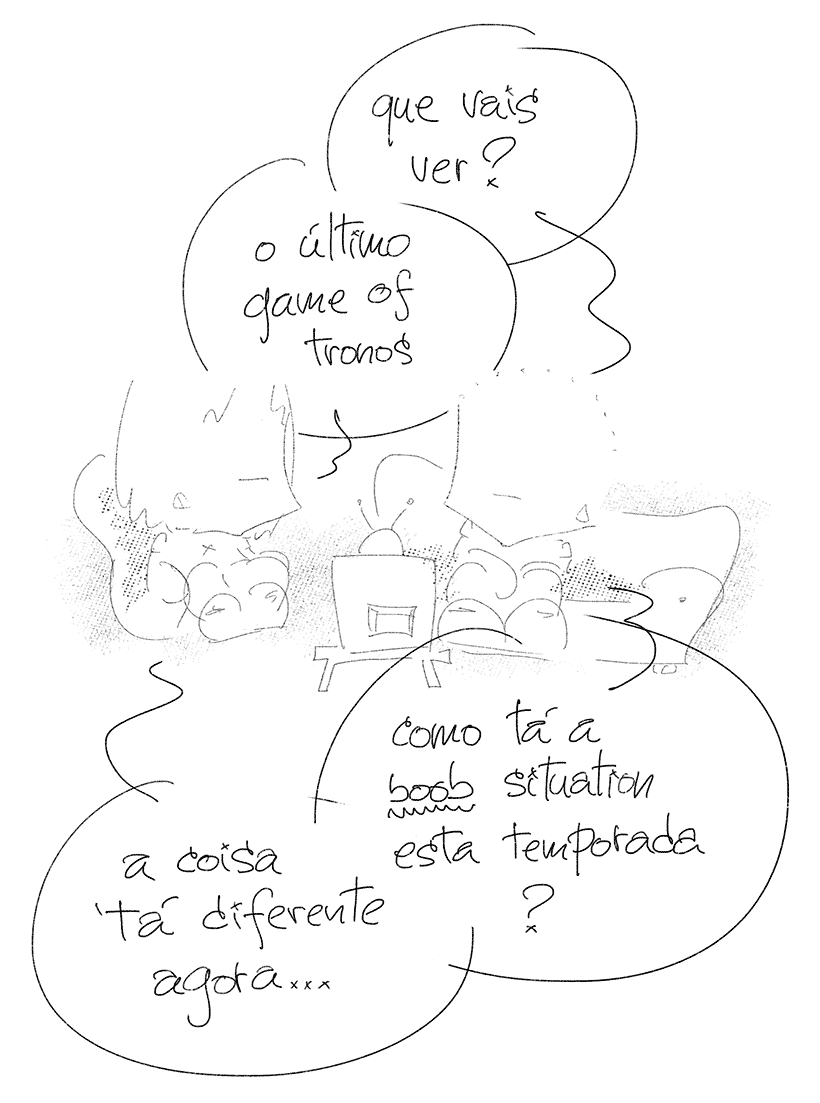 que vais
ver?
o último
game of
tronos
como tá a
boob situation
esta temporada
?
a coisa
'tá diferente
agora...